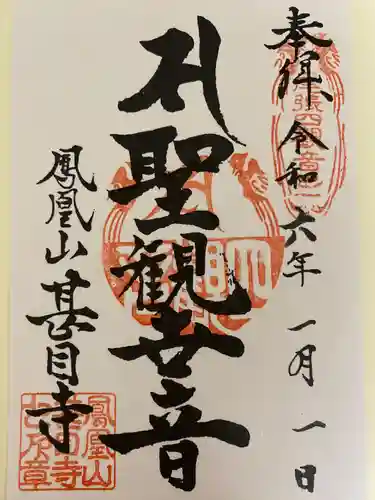 奉拝 令和六年 一月 一日
聖観世音
鳳凰山 甚目寺
尾張四観音
鳳凰山
甚目寺